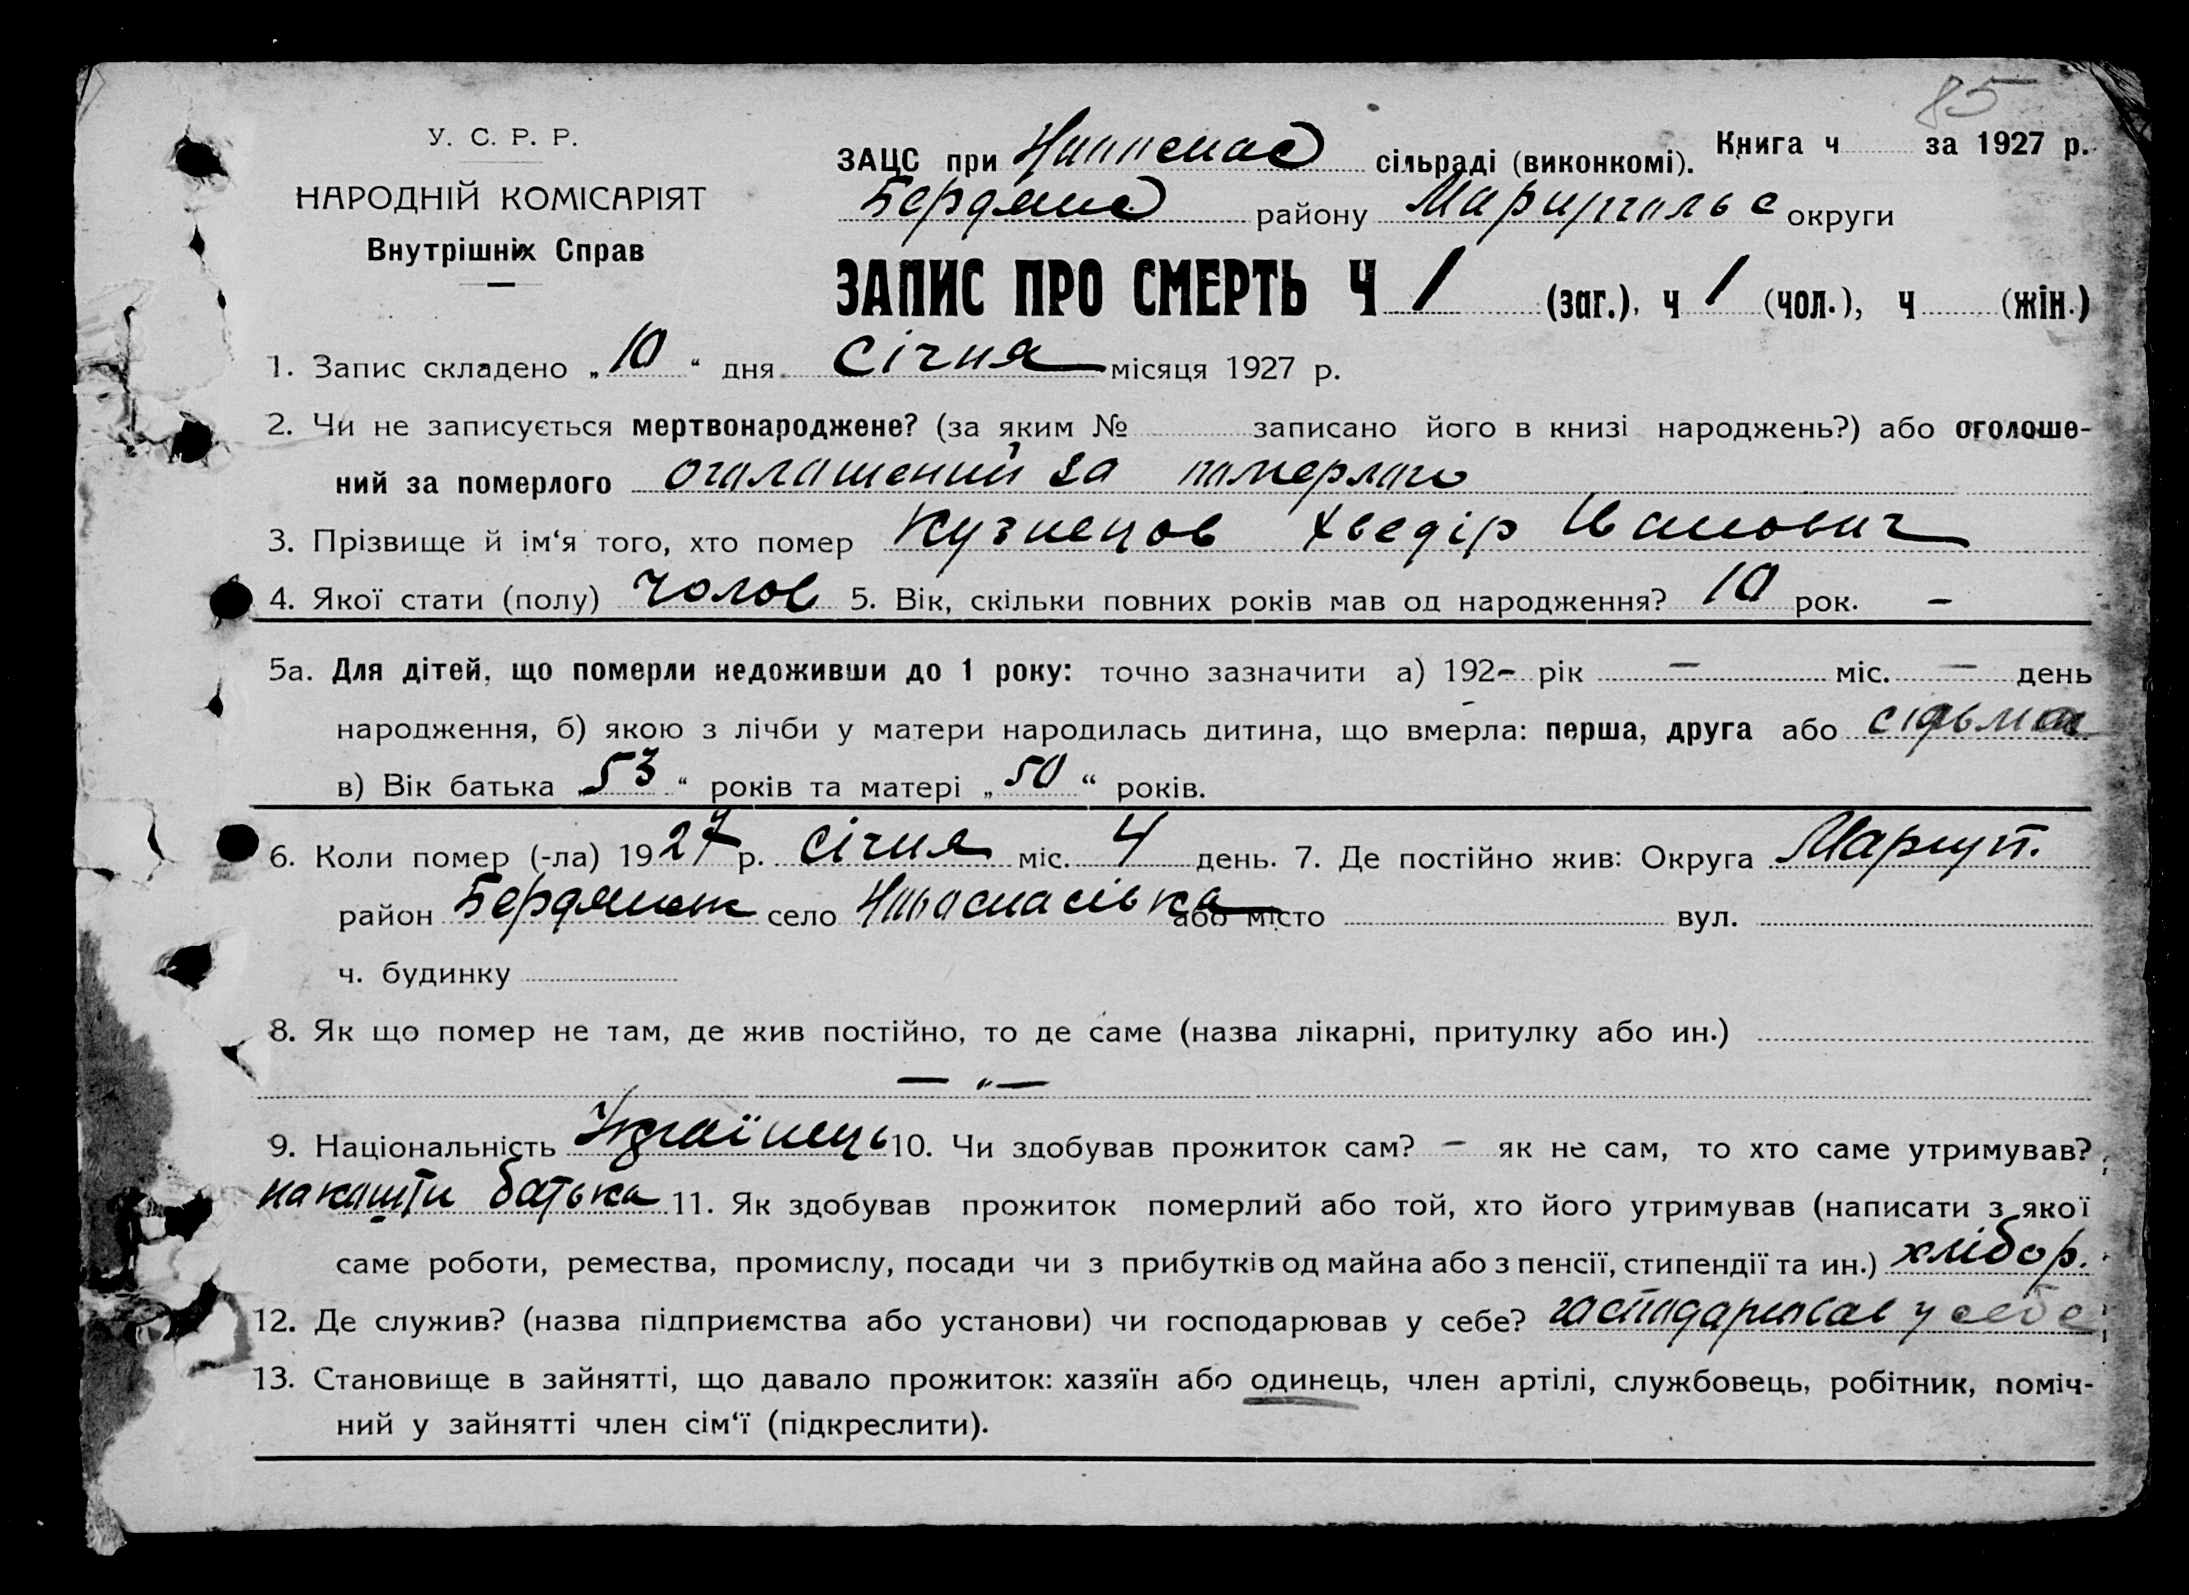 85
У. С. Р. Р.
НАРОДНІЙ КОМІСАРІЯТ
Внутрішніх Справ
ЗАЦС при сільраді (виконкомі). Книга ч за 1927 р.
Бердянс району Маріупольс округи
ЗАПИС ПРО СМЕРТЬ Ч 1 (заг.), ч 1 (чол.), ч (жін.)
1. Запис складено „ 10 “ дня Січня місяця 1927 р.
2. Чи не записується мертвонароджене? (за яким № записано його в книзі народжень?) або оголоше-
ний за померлого оголошений за померлого
3. Прізвище й ім‘я того, хто помер Кузнецов Хведір Іванович
4. Якої стати (полу) Чолов 5. Вік, скільки повних років мав од народження? 10 рок. –
5а. Для дітей, що померли недоживши до 1 року: точно зазначити а) 192- рік — міс. — день
народження, б) якою з лічби у матери народилась дитина, що вмерла: перша, друга або сідьмая
в) Вік батька „ 53 “ років та матері „ 50 “ років.
6. Коли помер (-ла) 1927 р. Січня міс. 4 день. 7. Де постійно жив: Округа Маріуп.
район Бердянськ село Новоспасівка або місто вул.
ч. будинку
8. Як що помер не там, де жив постійно, то де саме (назва лікарні, притулку або ин.)
— „ —
9. Національність Українець 10. Чи здобував прожиток сам? – як не сам, то хто саме утримував?
на кошти батька 11. Як здобував прожиток померлий або той, хто його утримував (написати з якої
саме роботи, ремества, промислу, посади чи з прибутків од майна або з пенсії, стипендії та ин.) хлібор.
12. Де служив? (назва підприємства або установи) чи господарював у себе? господарював у себе
13. Становище в зайнятті, що давало прожиток: хазяїн або одинець, член артілі, службовець, робітник, поміч-
ний у зайнятті член сім‘ї (підкреслити).